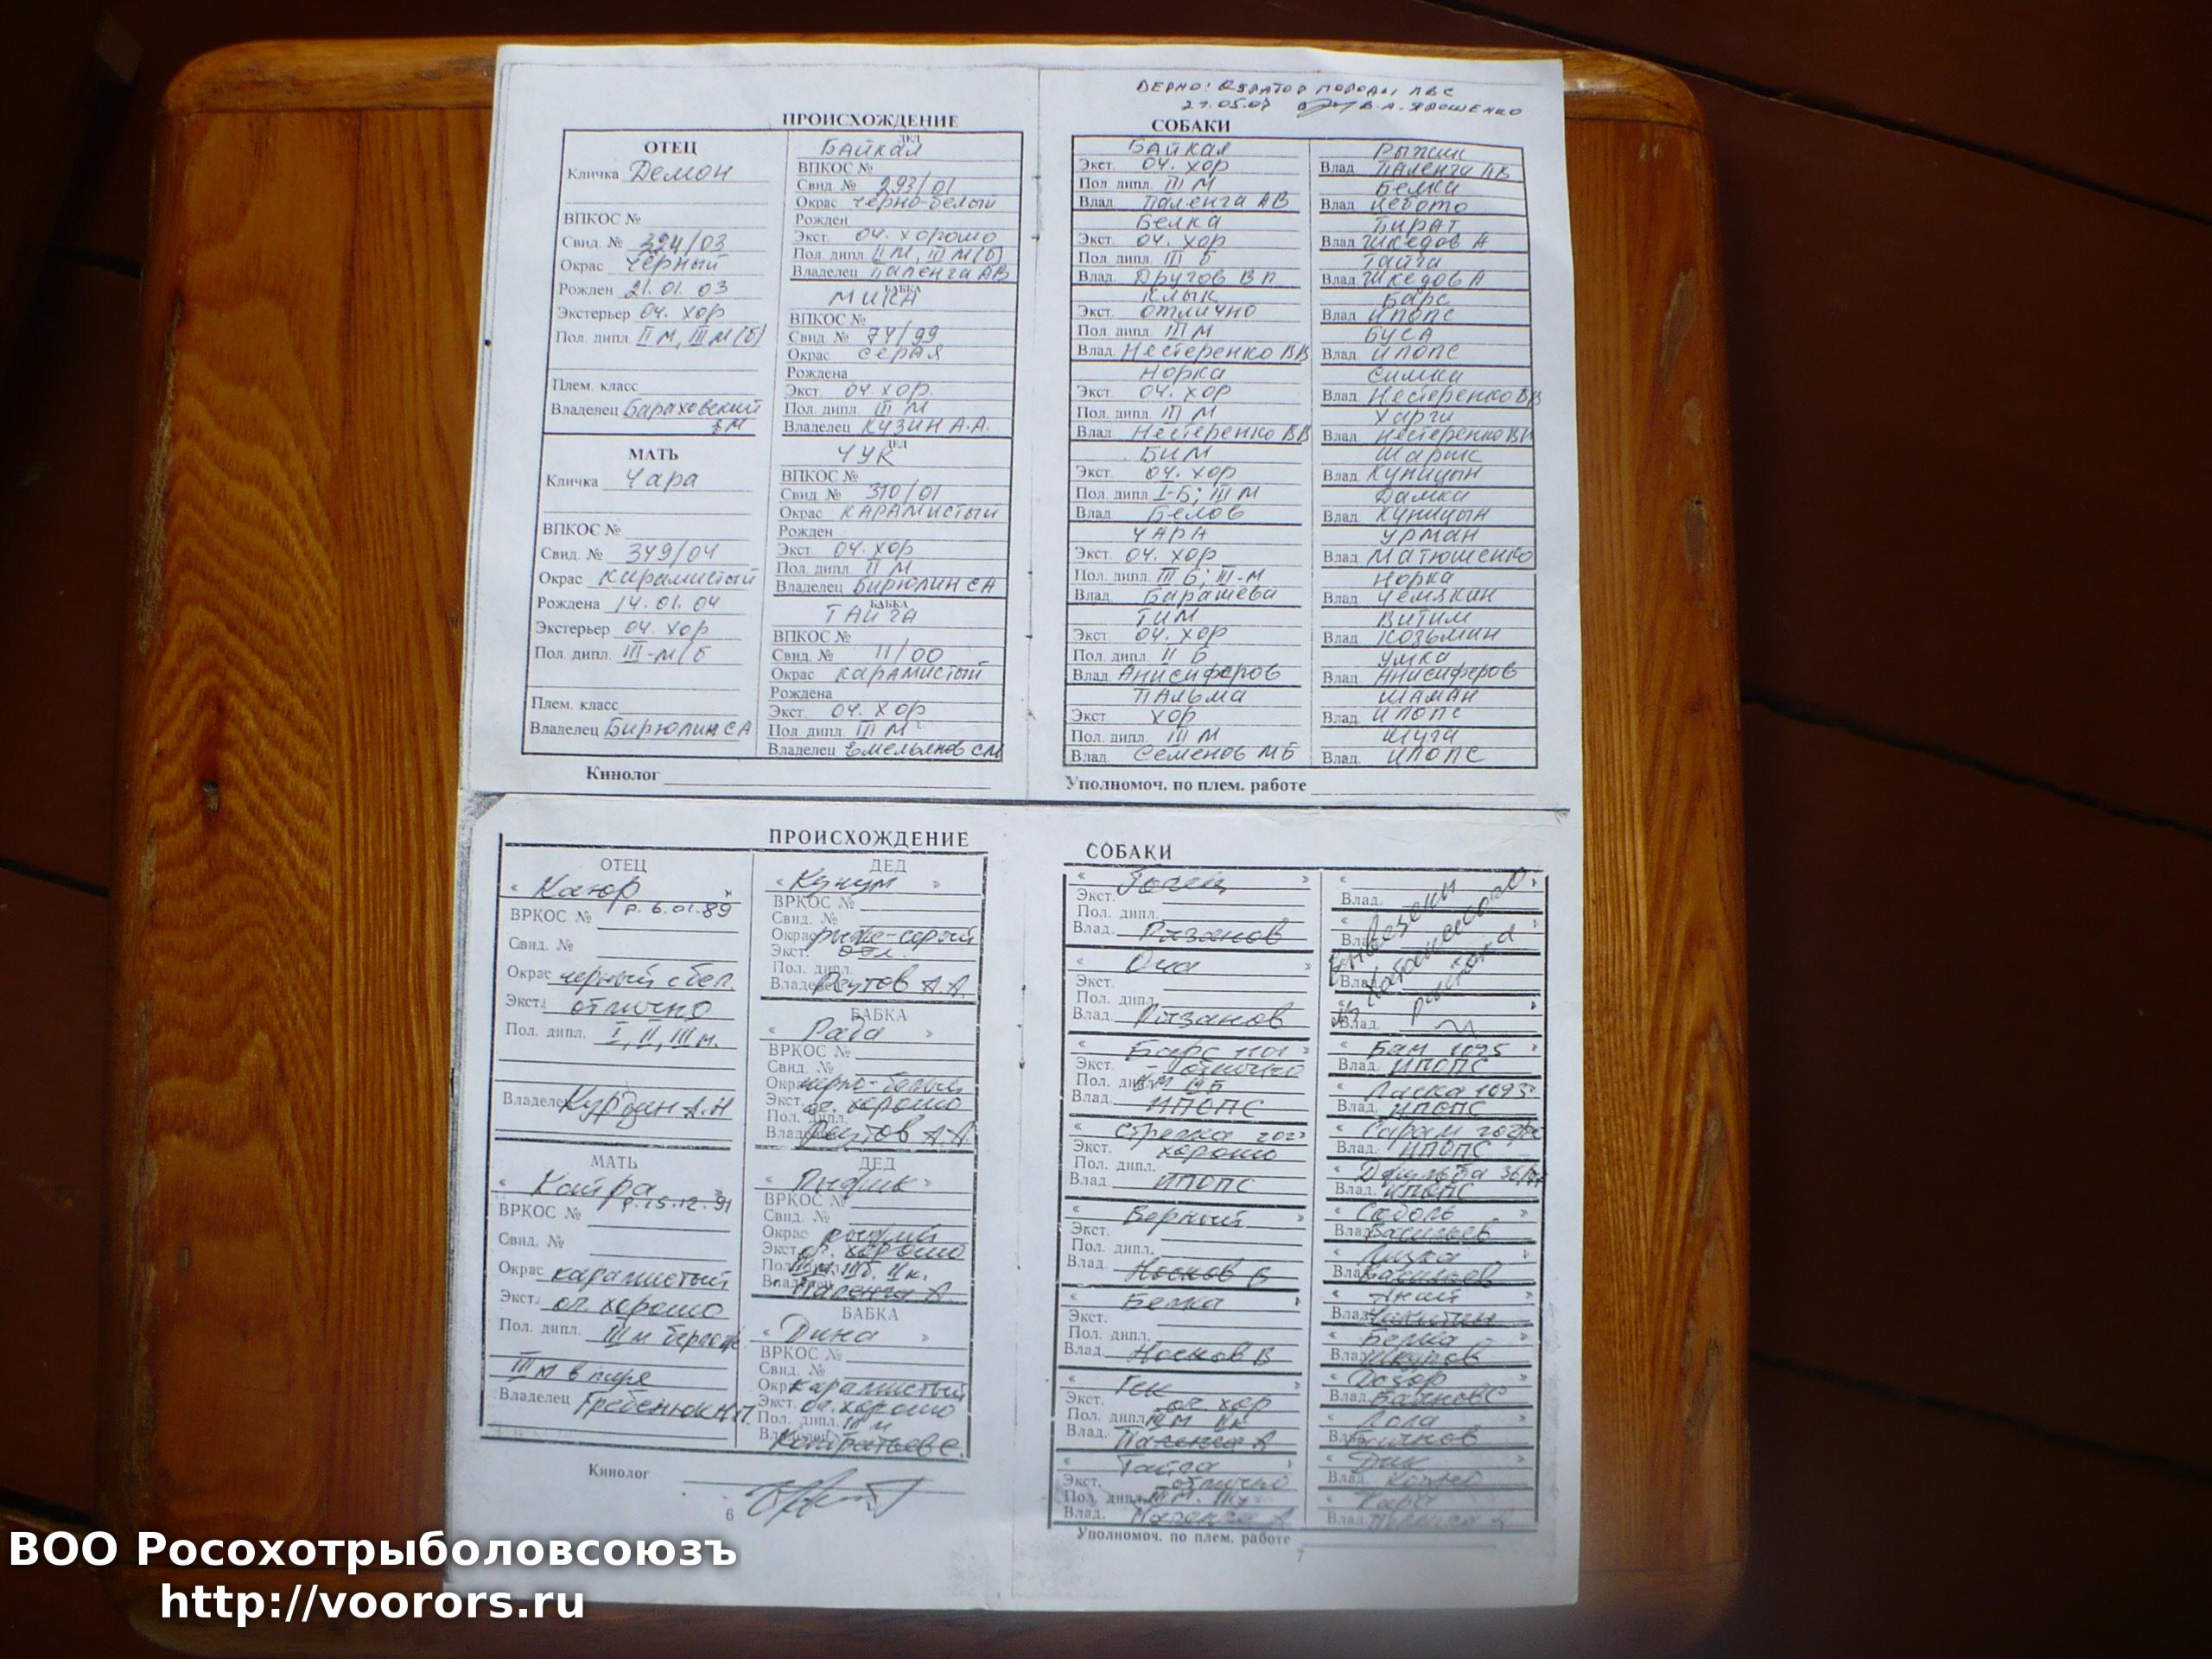 ВЕРНО: КУРАТОР ПОРОДЫ ЛВС
21.05.07 В.А. ЯРОШЕНКО
ПРОИСХОЖДЕНИЕ
ОТЕЦ
Кличка Демон
ВПКОС №
Свид. № 324/03
Окрас Чёрный
Рожден 21.01.03
Экстерьер оч. хор
Пол. дипл. II М, III М(б)
Плем. класс
Владелец Бараховский
МАТЬ
Кличка Чара
ВПКОС №
Свид. № 349/04
Окрас карамистый
Рождена 14.01.04
Экстерьер оч. хор
Пол. дипл. III-М/б
Плем. класс
Владелец Бирюлин СА
ДЕД
БАЙКАЛ
ВПКОС №
Свид. № 293/01
Окрас черно-белый
Рожден
Экст. оч. хорошо
Пол. дипл. II М, III М(б)
Владелец Паленга АВ
БАБКА
МИКА
ВПКОС №
Свид. № 74/99
Окрас серая
Рождена
Экст. оч. хор.
Пол. дипл. III М
Владелец КУЗИН А.А.
ДЕД
ЧУК
ВПКОС №
Свид. № 310/01
Окрас КАРАМИСТЫЙ
Рожден
Экст. оч. хор
Пол. дипл. II М
Владелец БИРЮЛИН СА
БАБКА
ТАЙГА
ВПКОС №
Свид. № 11/00
Окрас КАРАМИСТЫЙ
Рождена
Экст. оч. хор
Пол. дипл. III М
Владелец Емельянов СМ
Кинолог
СОБАКИ
БАЙКАЛ
Экст. оч. хор
Пол. дипл. III М
Влад. Паленга АВ
Белка
Экст. оч. хор
Пол. дипл. III Б
Влад. Другов В П
Клык
Экст. отлично
Пол. дипл. III М
Влад. Нестеренко ВВ
Норка
Экст. оч. хор
Пол. дипл. III М
Влад. Нестеренко ВВ
БИМ
Экст. оч. хор
Пол. дипл. I-Б; III М
Влад. Белов
ЧАРА
Экст. оч. хор
Пол. дипл. III Б; III-М
Влад. Барашева
ТИМ
Экст. оч. хор
Пол. дипл. II Б
Влад. Анисиферов
ПАЛЬМА
Экст. хор
Пол. дипл. III М
Влад. Семенов МБ
Рыжик
Влад. Паленга
Белка
Влад. Цебото
Бират
Влад. Шкедов А
Тайга
Влад. Шкедов А
Барс
Влад. ИПОПС
БУСА
Влад. ИПОПС
Симка
Влад. Нестеренко ВВ
Харги
Влад. Нестеренко ВВ
Шарик
Влад. Куницын
Дамка
Влад. Куницын
Урман
Влад. Матюшенко
Норка
Влад. Чемякин
Витим
Влад. Козьмин
Умка
Влад. Анисиферов
ШАМАН
Влад. ИПОПС
Шуга
Влад. ИПОПС
Уполномоч. по плем. работе
ПРОИСХОЖДЕНИЕ
ОТЕЦ
« Каюр »
р. 6.01.89
ВРКОС №
Свид. №
Окрас черный с бел.
Экст. отлично
Пол. дипл. I, II, III м.
Владелец Курдин А.Н
МАТЬ
« Кайра »
р. 15.12.91
ВРКОС №
Свид. №
Окрас карамистый
Экст. оч. хорошо
Пол. дипл. III м
III м в паре
Владелец Гребенюк Н П.
ДЕД
« Кучум »
ВРКОС №
Свид. №
Окрас рыже-серый
Экст. отл.
Пол. дипл.
Владелец Реутов А.А.
БАБКА
« Рада
ВРКОС №
Свид. №
Окрас черно-белый
Экст. оч. хорошо
Пол. дипл.
Владелец Реутов А.А.
ДЕД
« Рыжик »
ВРКОС №
Свид. №
Окрас рыжий
Экст. оч. хорошо
Пол. дипл. III м. III б. II к.
Владелец Паленга А.
БАБКА
« Дина »
ВРКОС №
Свид. №
Окрас карамистый
Экст. оч. хорошо
Пол. дипл. III м
Владелец Кондратьев С.
Кинолог
6
СОБАКИ
Экст.
Пол. дипл.
Влад. Рязанов
Экст.
Пол. дипл.
Влад. Рязанов
« Барс 1101 »
Экст. отлично
Пол. дипл.
Влад. ИПОПС
« Стрелка
Экст. хорошо
Пол. дипл.
Влад. ИПОПС
« Верный »
Экст.
Пол. дипл.
Влад. Носков В
« Белка »
Экст.
Пол. дипл.
Влад. Носков В
« Гек »
Экст. оч. хор
Пол. дипл.
Влад. Паленга А
« Тайга »
Экст. отлично
Пол. дипл.
Влад. Паленга А
Влад.
Влад.
Влад.
Влад.
« Бам 1095
Влад. ИПОПС
« Ласка 1093 »
Влад. ИПОПС
Влад. ИПОПС
Влад. ИПОПС
« Соболь »
Влад. Васильев
Влад. Васильев
Влад. Никитин
« Белка »
Влад. Шкуров
« Дозор
Влад.
« Лола
Влад.
« Дик
Влад.
Влад. Паленга А
Уполномоч. по плем. работе
7
ВОО Росохотрыболовсоюзъ
http://voorors.ru